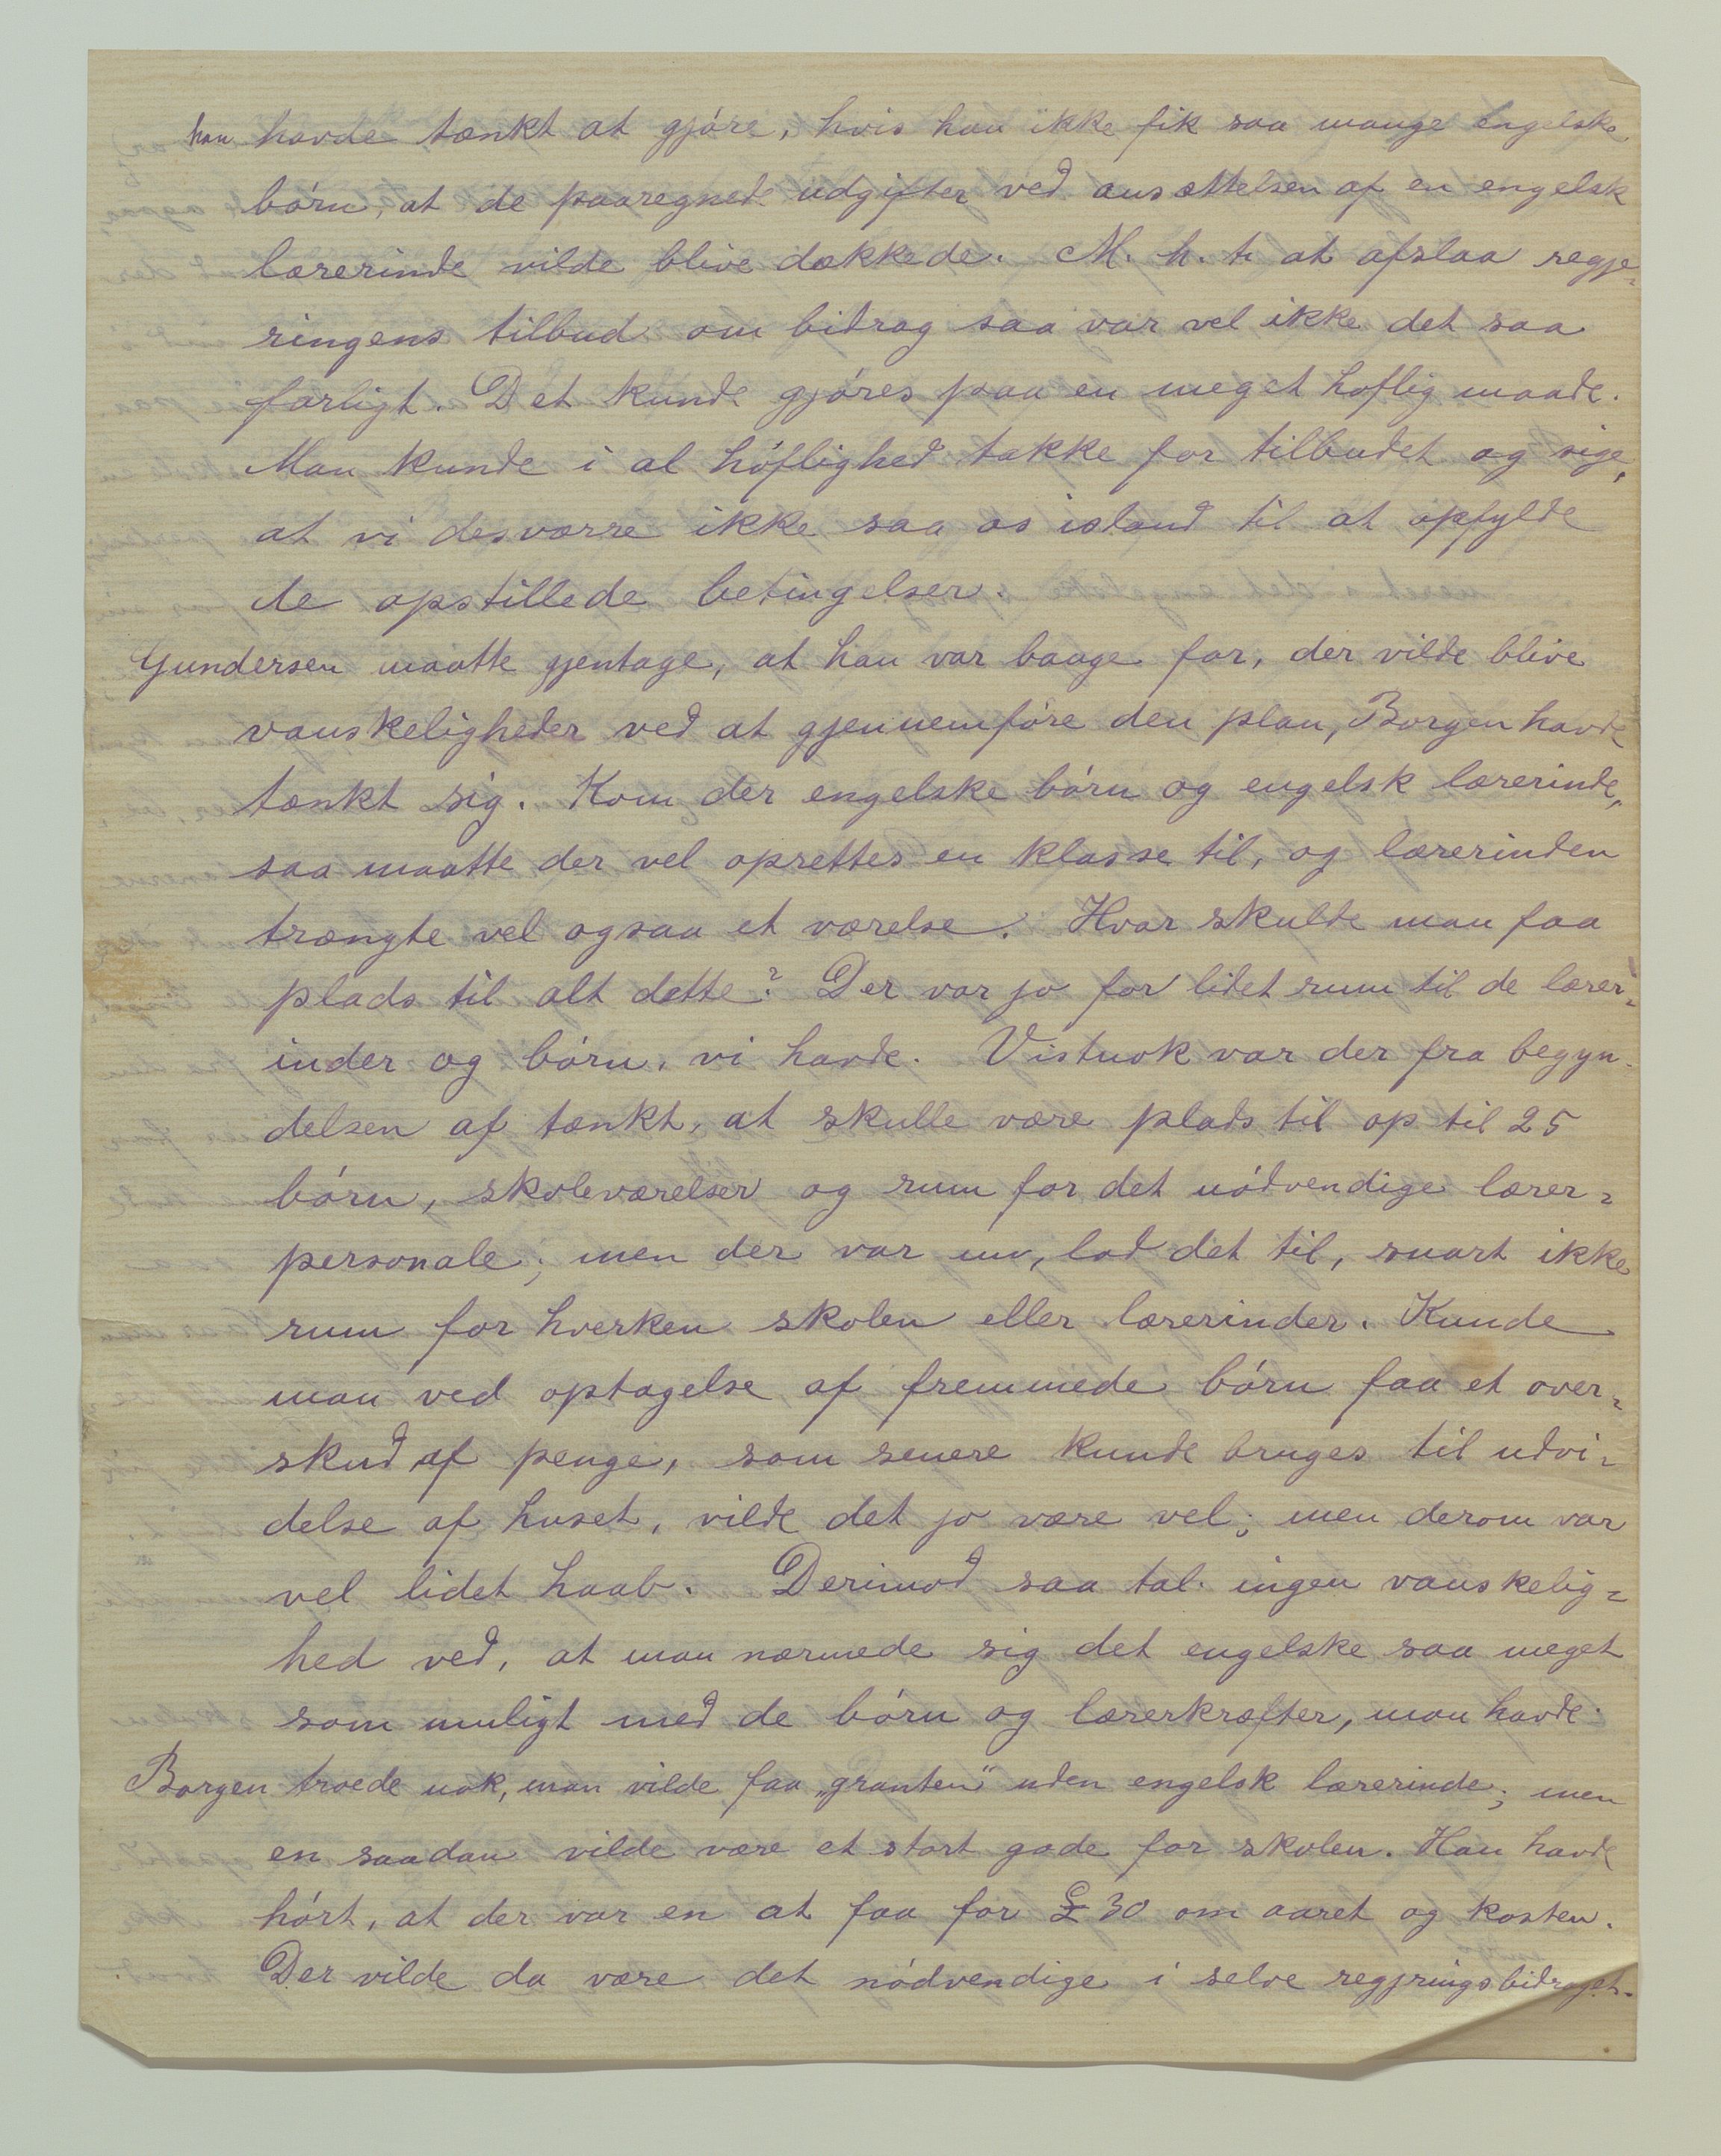 han havde tænkt at gjøre, hvis han ikke fik saa mange engelske
børn, at de paaregnede udgifter ved ansættelsen af en engelsk
lærerinde vilde blive dækkede. M. h. t. at afslaa regje-
ringens tilbud om bidrag saa var vel ikke det saa
farligt. Det kunde gjøres paa en meget høflig maade.
Man kunde i al høflighed takke for tilbudet og sige,
at vi desværre ikke saa os istand til at opfylde
de opstillede betingelser.
Gundersen maatte gjentage, at han var baage for, der vilde blive
vanskeligheder ved at gjennemføre den plan, Borgen havde
tænkt sig. Kom der engelske børn og engelsk lærerinde,
saa maatte der vel oprettes en klasse til, og lærerinden
trængte vel ogsaa et værelse. Hvor skulde man faa
plads til alt dette? Der var jo for lidet rum til de lærer-
inder og børn, vi havde. Vistnok var der fra begyn-
delsen af tænkt, at skulle være plads til op til 25
børn, skoleværelser og rum for det nødvendige lærer-
personale; men der var nu, lod det til, snart ikke
rum for hverken skolen eller lærerinder. Kunde
man ved optagelse af fremmede børn faa et over-
skud af penge, som senere kunde bruges til udvi-
delse af huset, vilde det jo være vel; men derom var
vel lidet haab. Derimod saa tal. ingen vanskelig-
hed ved, at man nærmede sig det engelske saa meget
som muligt med de børn og lærerkræfter, man havde.
Borgen troede nok, man vilde faa „granten" uden engelsk lærerinde; men
en saadan vilde være et stort gode for skolen. Han havde
hørt, at der var en at faa for £ 30 om aaret og kosten.
Der vilde da være det nødvendige i selve regjringsbidraget.